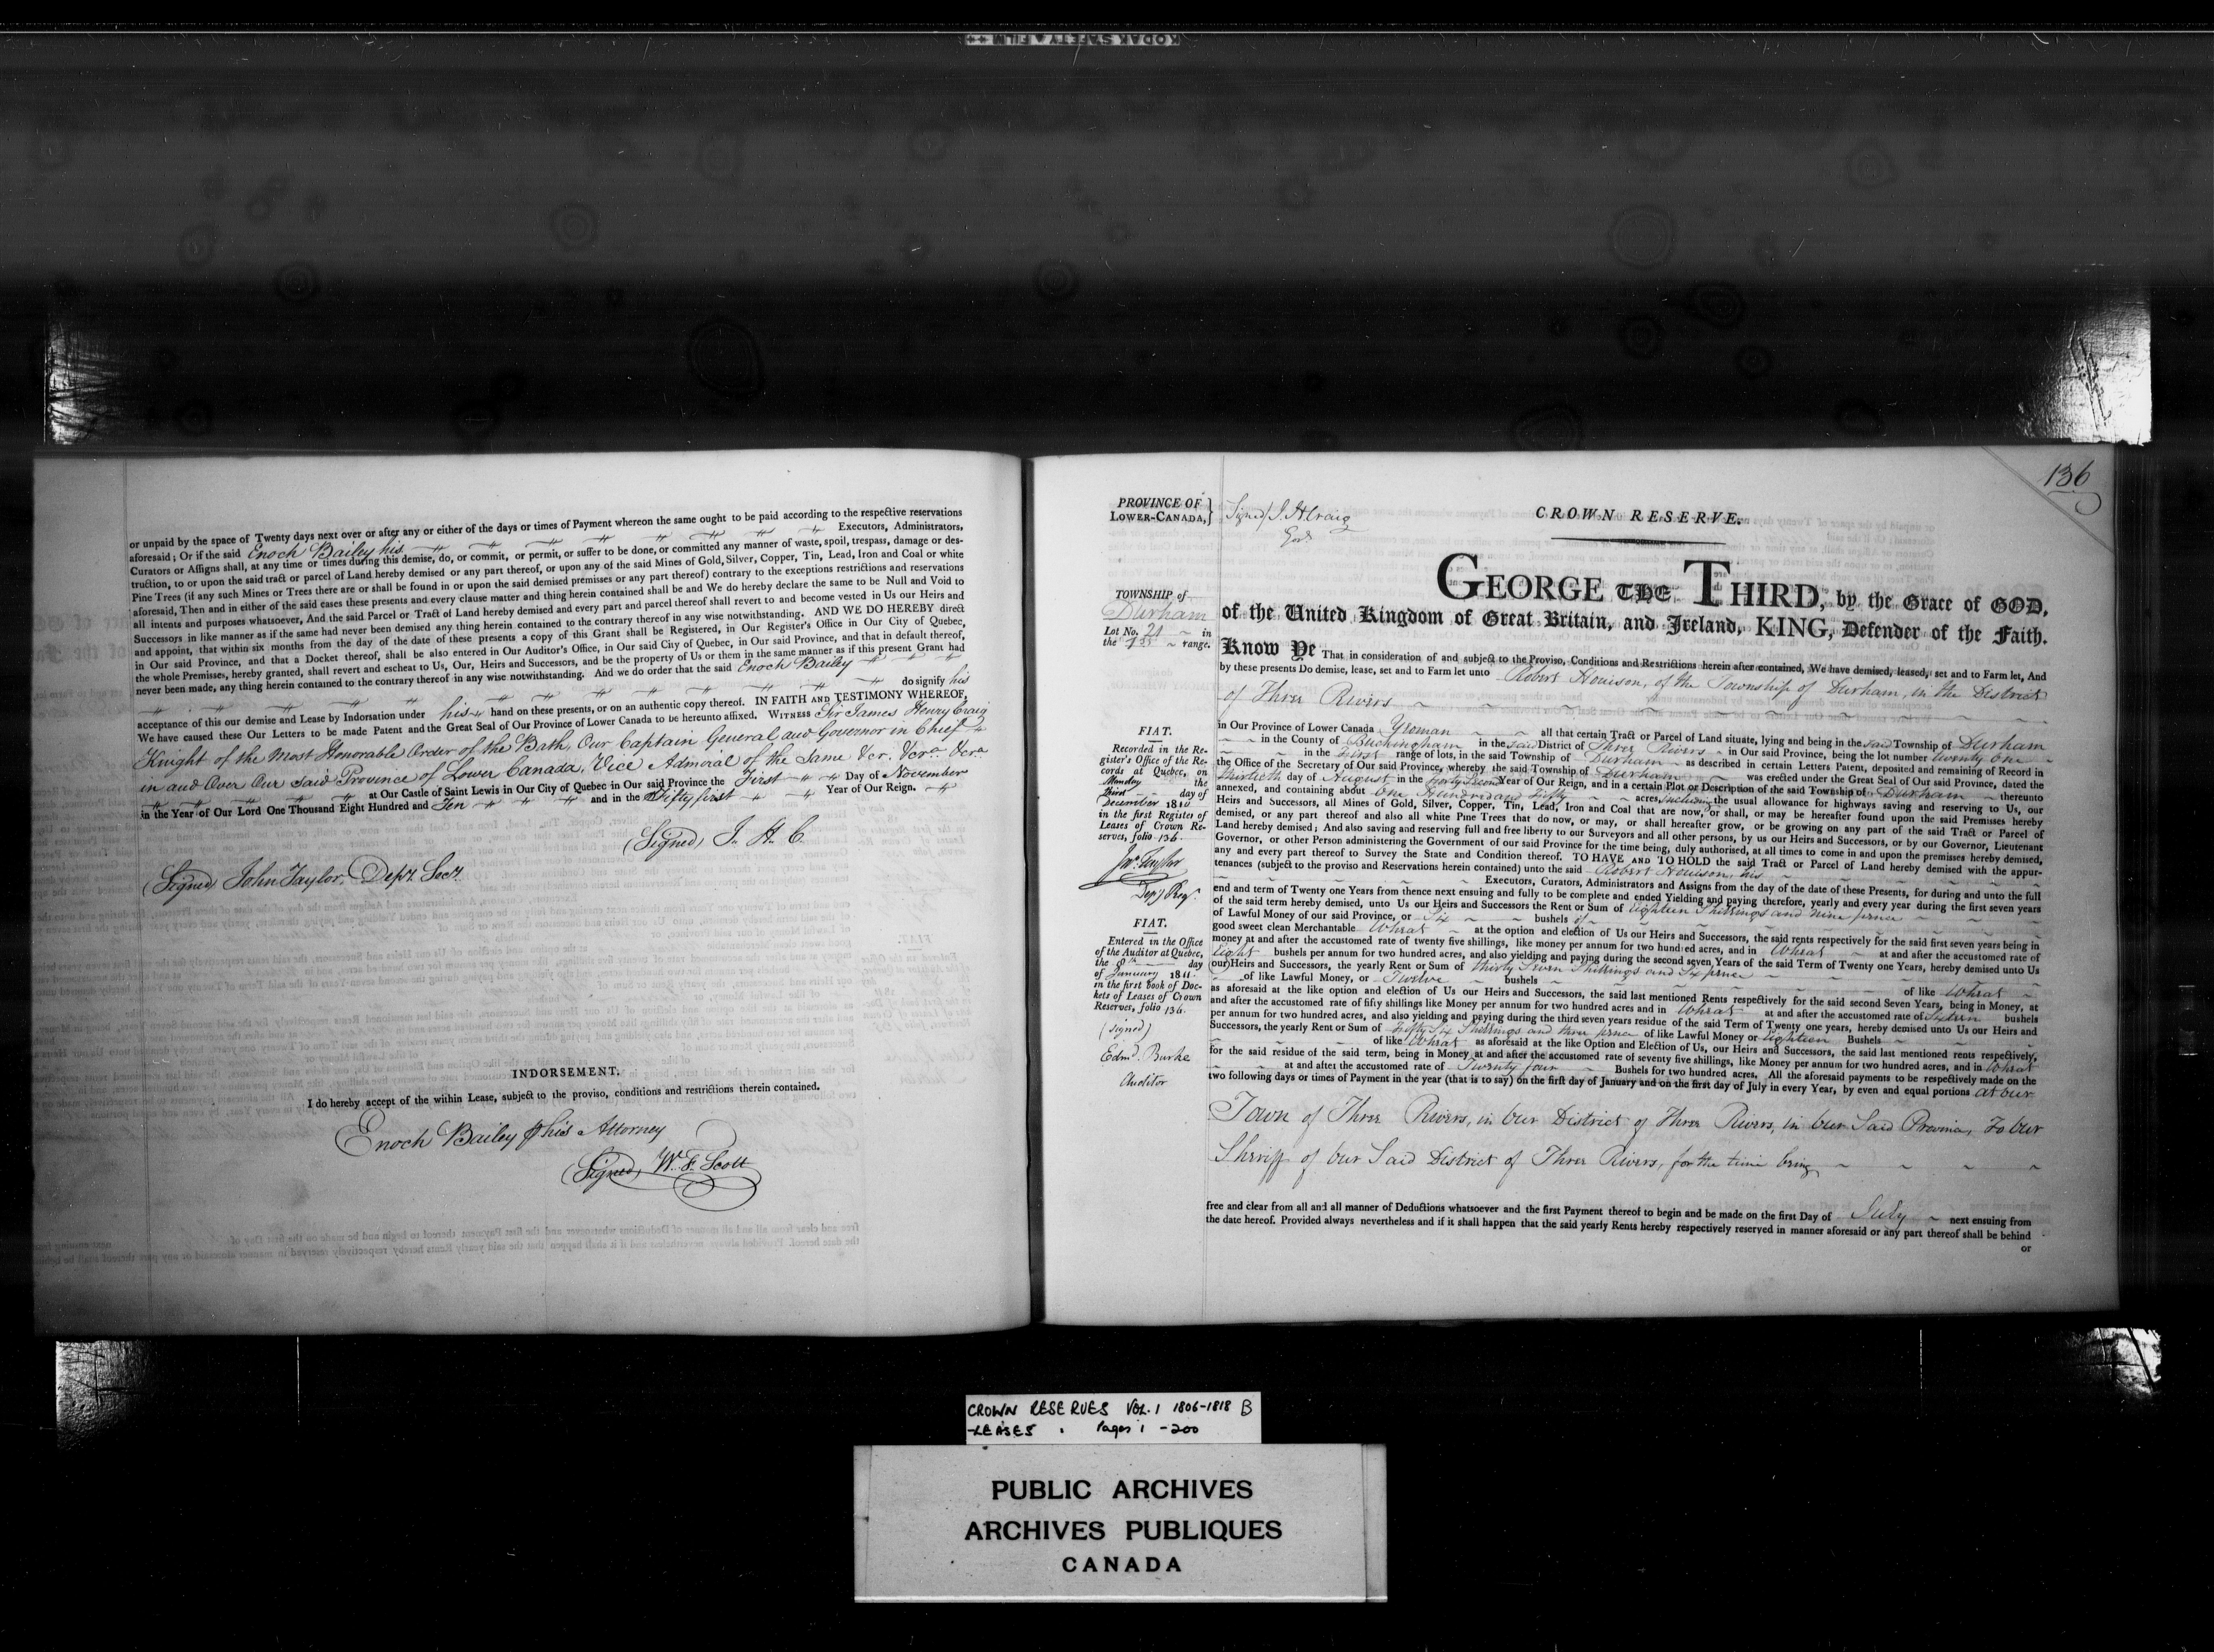 KODAK SAFETY FILM
or unpaid by the space of Twenty days next over or after any or either of the days or times of Payment whereon the same ought to be paid according to the respective reservations
aforesaid; Or if the said Enoch Bailey his Executors, Administrators,
Curators or Assigns shall, at any time or times during this demise, do, or commit, or permit, or suffer to be done, or committed any manner of waste, spoil, trespass, damage or des-
truction, to or upon the said tract or parcel of Land hereby demised or any part thereof, or upon any of the said Mines of Gold, Silver, Copper, Tin, Lead, Iron and Coal or white
Pine Trees (if any such Mines or Trees there are or shall be found in or upon the said demised premises or any part thereof) contrary to the exceptions restrictions and reservations
aforesaid, Then and in either of the said cases these presents and every clause matter and thing herein contained shall be and We do hereby declare the same to be Null and Void to
all intents and purposes whatsoever, And the said Parcel or Tract of Land hereby demised and every part and parcel thereof shall revert to and become vested in Us our Heirs and
Successors in like manner as if the same had never been demised any thing herein contained to the contrary thereof in any wise notwithstanding. AND WE DO HEREBY direct
and appoint, that within six months from the day of the date of these presents a copy of this Grant shall be Registered, in Our Register's Office in Our City of Quebec,
in Our said Province, and that a Docket thereof, shall be also entered in Our Auditor's Office, in Our said City of Quebec, in Our said Province, and that in default thereof,
the whole Premises, hereby granted, shall revert and escheat to Us, Our, Heirs and Successors, and be the property of Us or them in the same manner as if this present Grant had
never been made, any thing herein contained to the contrary thereof in any wise notwithstanding. And we do order that the said Enoch Bailey
do signify his
acceptance of this our demise and Lease by Indorsation under his hand on these presents, or on an authentic copy thereof. IN FAITH AND TESTIMONY WHEREOF,
We have caused these Our Letters to be made Patent and the Great Seal of Our Province of Lower Canada to be hereunto affixed. WITNESS Sir James Henry Craig
Knight of the Most Honorable Order of the Bath, Our Captain General and Governor in Chief
in and Over Our Said Province of Lower Canada, Vice Admiral of the Same &cr. &cra &cra
at Our Castle of Saint Lewis in Our City of Quebec in Our said Province the First Day of November
in the Year of Our Lord One Thousand Eight Hundred and Ten and in the Fifty first Year of Our Reign.
(Signed) J. H. C.
(Signed) John Taylor, Depy. Secy.
INDORSEMENT.
I do hereby accept of the within Lease, subject to the proviso, conditions and restrictions therein contained.
Enoch Bailey p his Attorney
(Signed) W. F. Scott
136
PROVINCE OF LOWER-CANADA,}
Signed/ J. H. Craig
Govr.
CROWN RESERVE.
TOWNSHIP of
Durham
Lot No. 21 in
the 1st range.
GEORGE THE THIRD, by the Grace of GOD,
of the United Kingdom of Great Britain, and Ireland, KING, Defender of the Faith.
Know Ye That in consideration of and subject to the Proviso, Conditions and Restrictions herein after contained, We have demised, leased, set and to Farm let, And
by these presents Do demise, lease, set and to Farm let unto Robert Houison, of the Township of Durham, in the District
of Three Rivers
in Our Province of Lower Canada Yeoman all that certain Tract or Parcel of Land situate, lying and being in the said Township of Durham
in the County of Buckingham in the said District of Three Rivers in Our said Province, being the lot number twenty one
in the First range of lots, in the said Township of Durham as described in certain Letters Patent, deposited and remaining of Record in
the Office of the Secretary of Our said Province, whereby the said Township of Durham was erected under the Great Seal of Our said Province, dated the
thirtieth day of August in the forty Second Year of Our Reign, and in a certain Plot or Description of the said Township of Durham thereunto
annexed, and containing about One Hundred and Fifty acres, including the usual allowance for highways saving and reserving to Us, our
Heirs and Successors, all Mines of Gold, Silver, Copper, Tin, Lead, Iron and Coal that are now, or shall, or may be hereafter found upon the said Premises hereby
demised, or any part thereof and also all white Pine Trees that do now, or may, or shall hereafter grow, or be growing on any part of the said Tract or Parcel of
Land hereby demised; And also saving and reserving full and free liberty to our Surveyors and all other persons, by us our Heirs and Successors, or by our Governor, Lieutenant
Governor, or other Person administering the Government of our said Province for the time being, duly authorised, at all times to come in and upon the premises hereby demised,
any and every part thereof to Survey the State and Condition thereof. TO HAVE AND TO HOLD the said Tract or Parcel of Land hereby demised with the appur-
tenances (subject to the proviso and Reservations herein contained) unto the said Robert Houison, his
Executors, Curators, Administrators and Assigns from the day of the date of these Presents, for during and unto the full
end and term of Twenty one Years from thence next ensuing and fully to be complete and ended Yielding and paying therefore, yearly and every year during the first seven years
of the said term hereby demised, unto Us our Heirs and Successors the Rent or Sum of Eighteen Shillings and nine pence
of Lawful Money of our said Province, or Six bushels of
good sweet clean Merchantable Wheat at the option and election of Us our Heirs and Successors, the said rents respectively for the said first seven years being in
money at and after the accustomed rate of twenty five shillings, like money per annum for two hundred acres, and in Wheat at and after the accustomed rate of
Eight bushels per annum for two hundred acres, and also yielding and paying during the second seven Years of the said Term of Twenty one Years, hereby demised unto Us
our Heirs and Successors, the yearly Rent or Sum of thirty Seven Shillings and Six pence
of like Lawful Money, or Twelve bushels of like Wheat
as aforesaid at the like option and election of Us our Heirs and Successors, the said last mentioned Rents respectively for the said second Seven Years, being in Money, at
and after the accustomed rate of fifty shillings like Money per annum for two hundred acres and in Wheat at and after the accustomed rate of Sixteen bushels
per annum for two hundred acres, and also yielding and paying during the third seven years residue of the said Term of Twenty one years, hereby demised unto Us our Heirs and
Successors, the yearly Rent or Sum of Fifty Six Shillings and three pence of like Lawful Money or Eighteen Bushels
of like Wheat as aforesaid at the like Option and Election of Us, our Heirs and Successors, the said last mentioned rents respectively,
for the said residue of the said term, being in Money at and after the accustomed rate of seventy five shillings, like Money per annum for two hundred acres, and in Wheat
at and after the accustomed rate of Twenty four Bushels for two hundred acres. All the aforesaid payments to be respectively made on the
two following days or times of Payment in the year (that is to say) on the first day of January and on the first day of July in every Year, by even and equal portions at our
Town of Three Rivers, in Our District of Three Rivers, in Our Said Province, To Our
Sheriff of Our Said District of Three Rivers, for the time being
free and clear from all and all manner of Deductions whatsoever and the first Payment thereof to begin and be made on the first Day of July next ensuing from
the date hereof. Provided always nevertheless and if it shall happen that the said yearly Rents hereby respectively reserved in manner aforesaid or any part thereof shall be behind
or
FIAT.
Recorded in the Re-
gister's Office of the Re-
cords at Quebec, on
Monday the
third day of
December 1810
in the first Register of
Leases of Crown Re-
serves, folio 136.
Jno. Taylor
Depy Regr.
FIAT.
Entered in the Office
of the Auditor at Quebec,
the 8th day
of January 1811
in the first book of Doc-
kets of Leases of Crown
Reserves, folio 136.
(signed)
Edmd. Burke
Auditor
CROWN RESERVES VOL. 1 1806-1818 B
-LEASES. Pages 1 - 200
PUBLIC ARCHIVES
ARCHIVES PUBLIQUES
CANADA